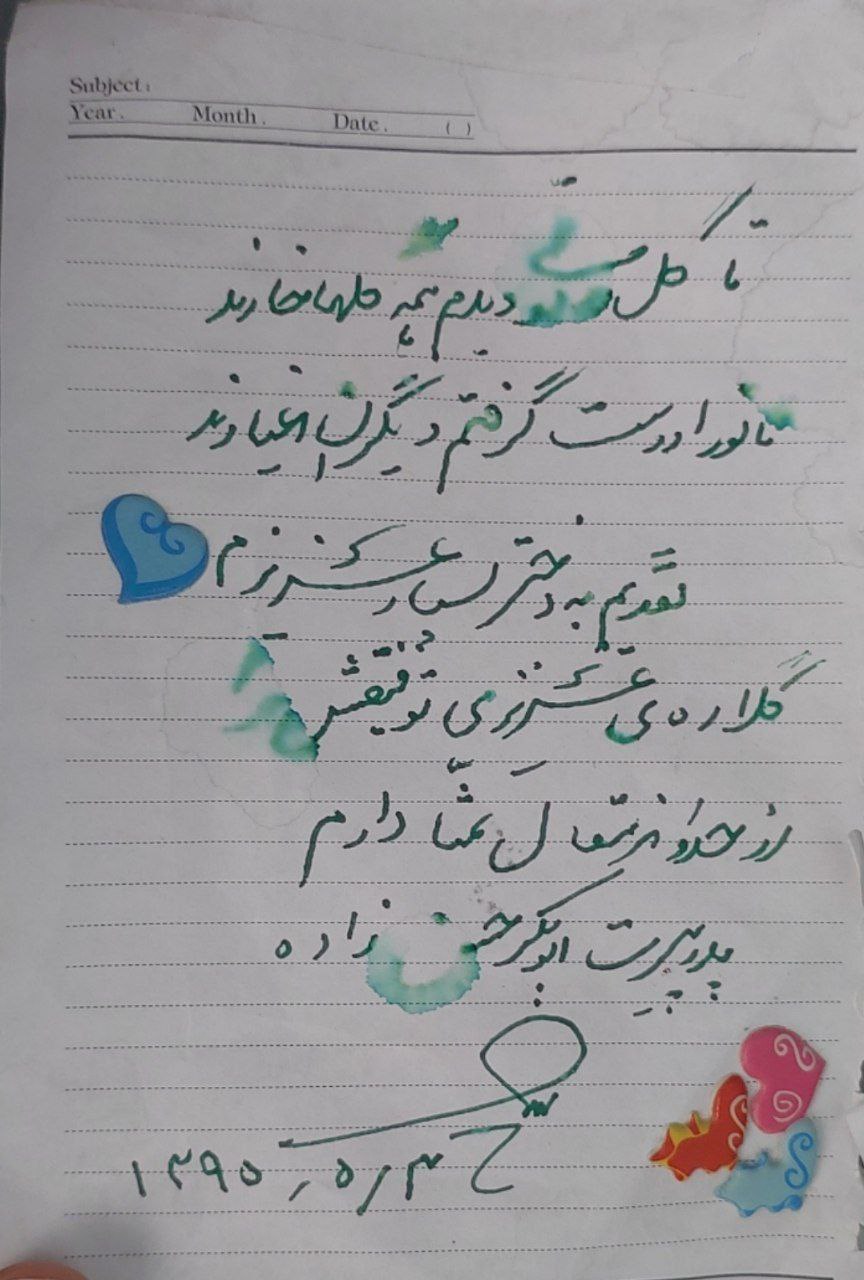 Subject:
Year. Month. Date. ( )
تا گل روی تو دیدم همه گلها خارند
تا تو را دوست گرفتم دیگران اغیارند
تقدیم به دختر بسیار عزیزم
گلاره‌ی عزیزم توفیقش
از خداوند متعال تمنّا دارم
پدر پیرت ابوبکر حسن زاده
۱۳۹۵/۵/۳